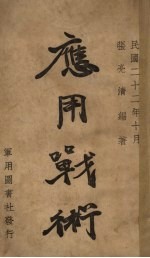 民國二十二年十月
張亮清編著
應用戰術
軍用圖書社發行